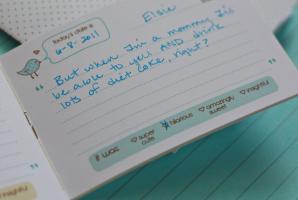 today's date is
6-8-2011
Elsie
But when I'm a mommy I'll
be able to yell AND drink
lots of diet coke, right?
# was
super cute
hilarious
amazingly sweet
insightful
insightful